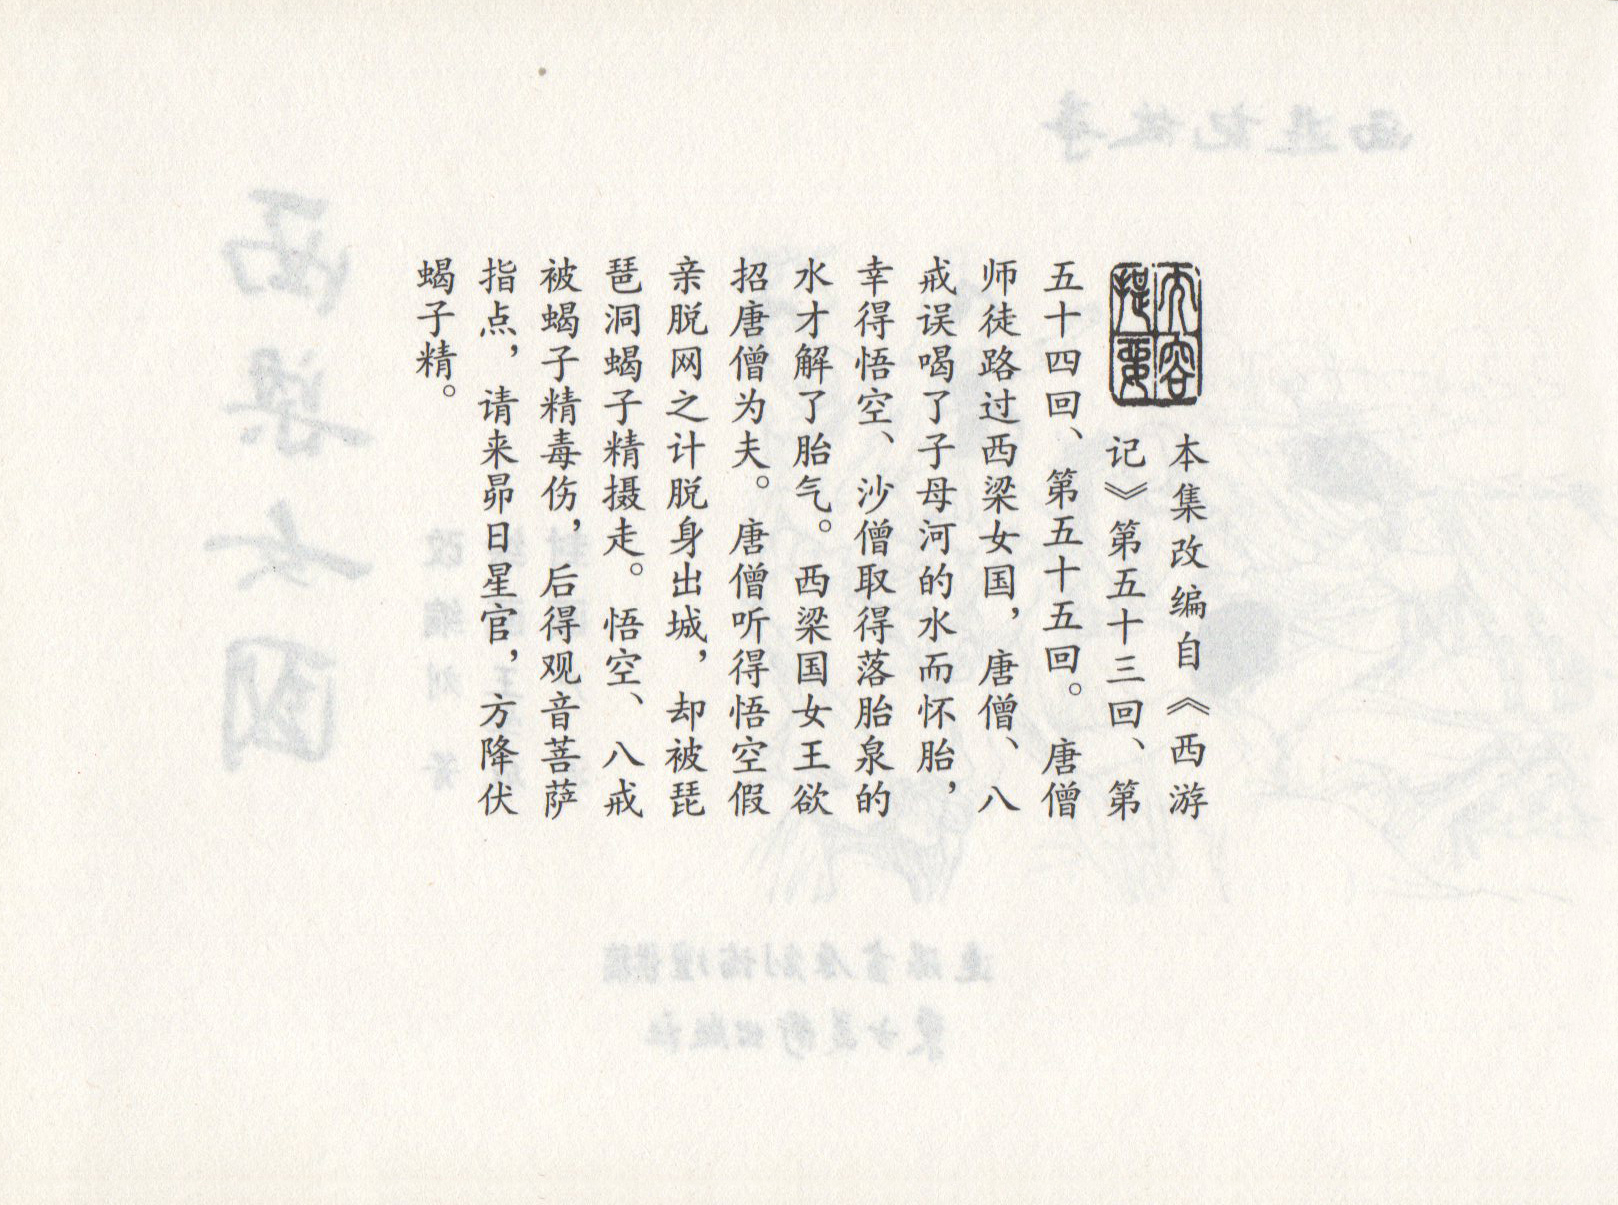 内容提要
本集改编自《西游
记》第五十三回、第
五十四回、第五十五回。唐僧
师徒路过西梁女国，唐僧、八
戒误喝了子母河的水而怀胎，
幸得悟空、沙僧取得落胎泉的
水才解了胎气。西梁国女王欲
招唐僧为夫。唐僧听得悟空假
亲脱网之计脱身出城，却被琵
琶洞蝎子精摄走。悟空、八戒
被蝎子精毒伤，后得观音菩萨
指点，请来昴日星官，方降伏
蝎子精。
西游记故事
西梁女国
改编 刘
连环画原创论坛
东方美术出版社